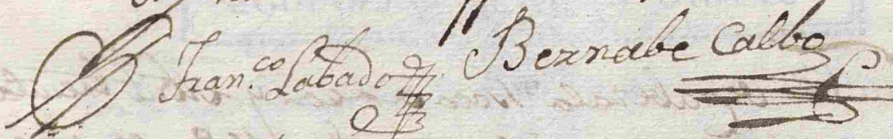 Fran.co Labado Bernabe Calbo